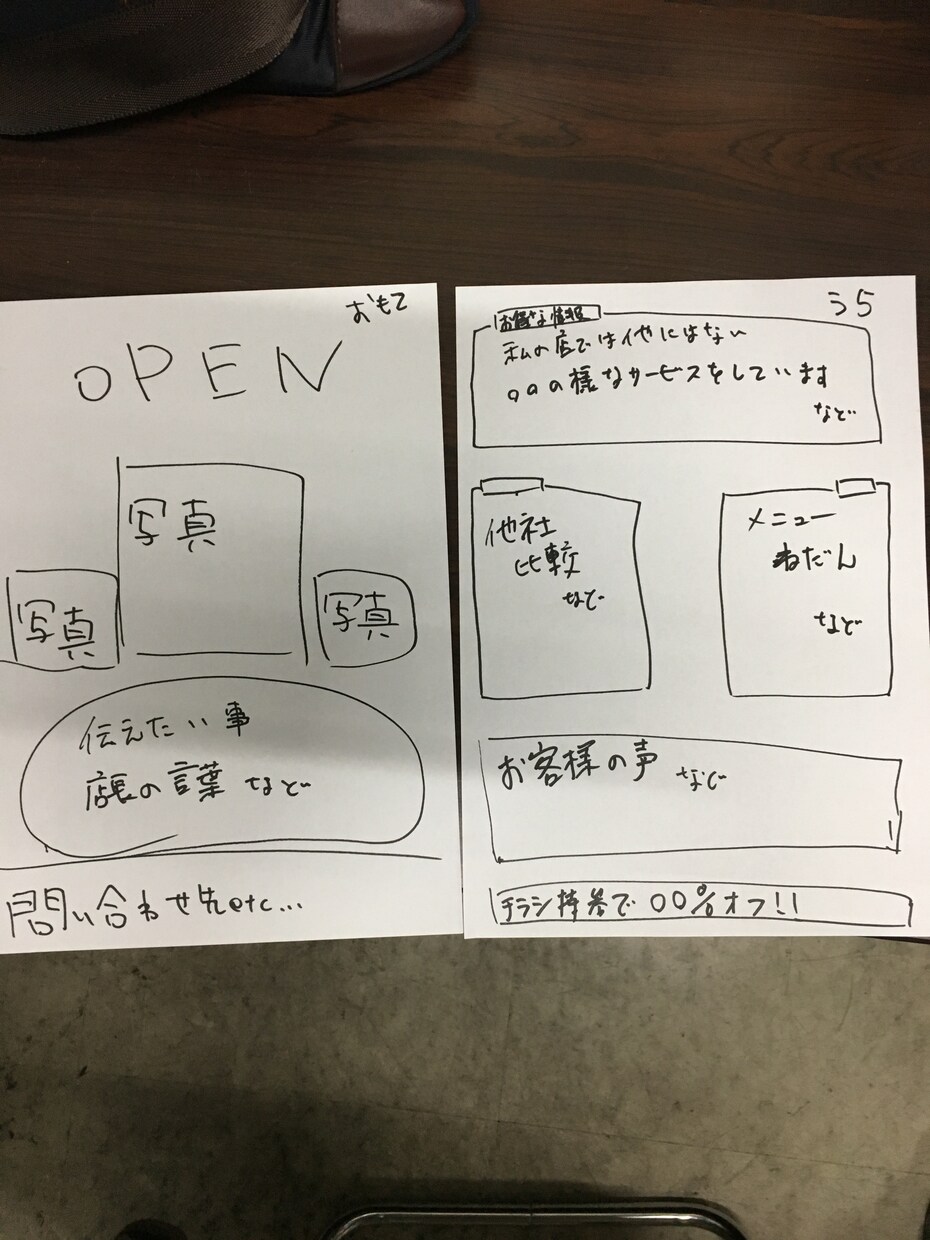 おもて
OPEN
写真
写真
写真
伝えたい事
店長の言葉 など
問い合わせ先etc...
うら
お得な情報
私の店では他にはない
○○の様なサービスをしています
など
他社
比較
など
メニュー
ねだん
など
お客様の声 など
チラシ持参で〇〇%オフ!!